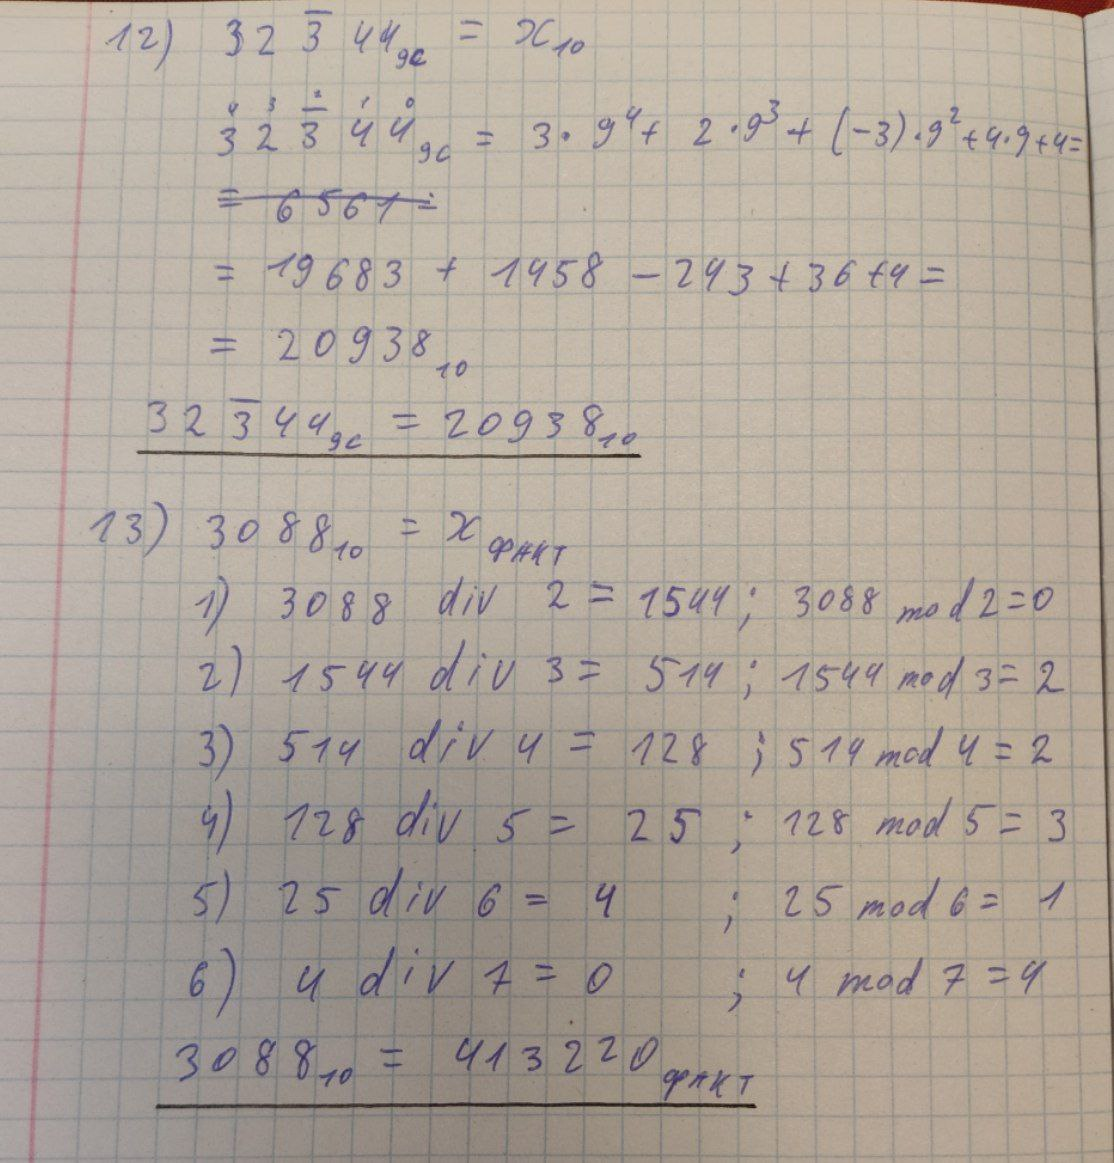 12) 323̅44₉c = x₁₀
4 3 2 1 0
323̅44₉c = 3·9⁴+ 2·9³+ (-3)·9²+4·9+4=
= 6561 =
= 19683 + 1458 - 243 + 36 + 4 =
= 20938₁₀
323̅44₉c = 20938₁₀
13) 3088₁₀ = x факт
1) 3088 div 2 = 1544; 3088 mod 2=0
2) 1544 div 3 = 514; 1544 mod 3=2
3) 514 div 4 = 128; 514 mod 4=2
4) 128 div 5 = 25; 128 mod 5=3
5) 25 div 6 = 4; 25 mod 6= 1
6) 4 div 7 = 0; 4 mod 7=4
3088₁₀ = 413220 факт